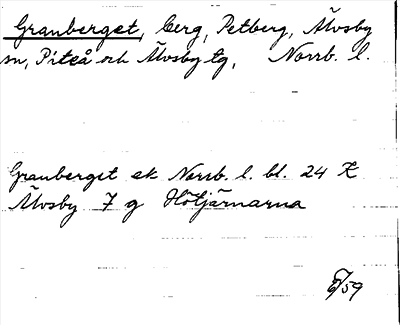 Granberget, berg, Petberg, Älvsby
sn, Piteå och Älvsby tg, Norrb. l.
Granberget ek Norrb. l. bl. 24 K
Älvsby 7 g Hötjärnarna
6/59